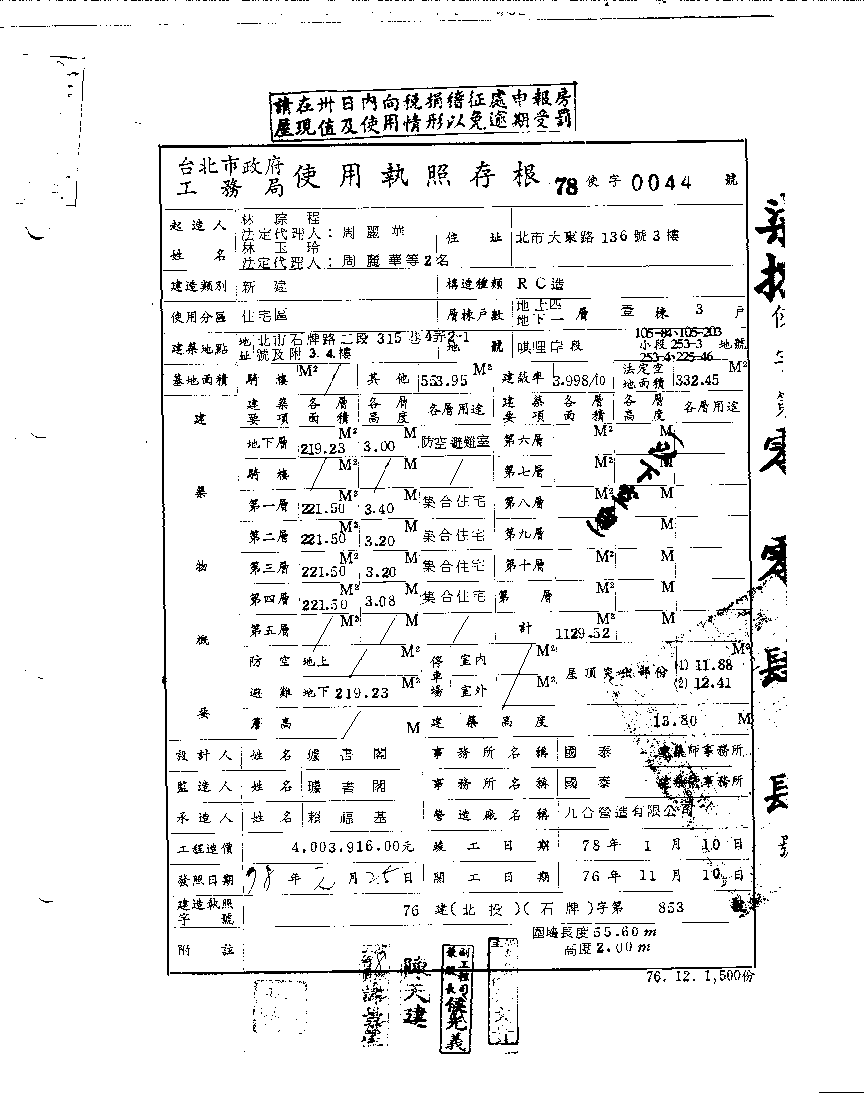 請在卅日內向稅捐稽征處申報房
屋現值及使用情形以免逾期受罰
台北市政府
工務局 使用執照存根 78 使字 0044 號
起造人 姓名 林 程
法定代理人：周麗華
林玉玲
法定代理人：周麗華等2名
住址 北市大東路136號3樓
建造類別 新建 構造種類 RC造
使用分區 住宅區 層棟戶數 地上四 地下一 層 壹棟 3 戶
建築地點 地址 北市石牌路二段315巷4弄2-1
號及附3.4樓
地號 唭哩岸段 105-84、105-203
小段253-3 地號
253-4、225-46
基地面積 騎樓 M² 其他 553.95 M² 建蔽率 3.998/10 法定空地面積 332.45 M²
建築物概要
建築要項 各層面積 各層高度 各層用途 建築要項 各層面積 各層高度 各層用途
地下層 219.23 M² 3.00 M 防空避難室 第六層 M² M
騎樓 M² M 第七層 M² M
第一層 221.50 M² 3.40 M 集合住宅 第八層 M² M
第二層 221.50 M² 3.20 M 集合住宅 第九層 M² M
第三層 221.50 M² 3.20 M 集合住宅 第十層 M² M
第四層 221.50 M² 3.08 M 集合住宅 第 層 M² M
第五層 M² M 計 1129.52 M² M
(以下空白)
防空避難 地上 M² 停車場 室內 M² 屋頂突出部份 (1) 11.88 M²
地下 219.23 M² 室外 M² (2) 12.41
簷高 M 建築高度 13.80 M
設計人 姓名 書閣 事務所名稱 國泰 建築師事務所
監造人 姓名 書閣 事務所名稱 國泰 建築師事務所
承造人 姓名 賴福基 營造廠名稱 九合營造有限公司
工程造價 4,003,916.00元 竣工日期 78年 1月 10日
發照日期 78年 元月 25日 開工日期 76年 11月 10日
建造執照字號 76 建(北投)(石牌)字第 853 號
附註 圍牆長度55.60m
高度2.00m
76.12.1,500份
陳天建
副工程司
兼股長 侯光義
使字第零零肆肆號